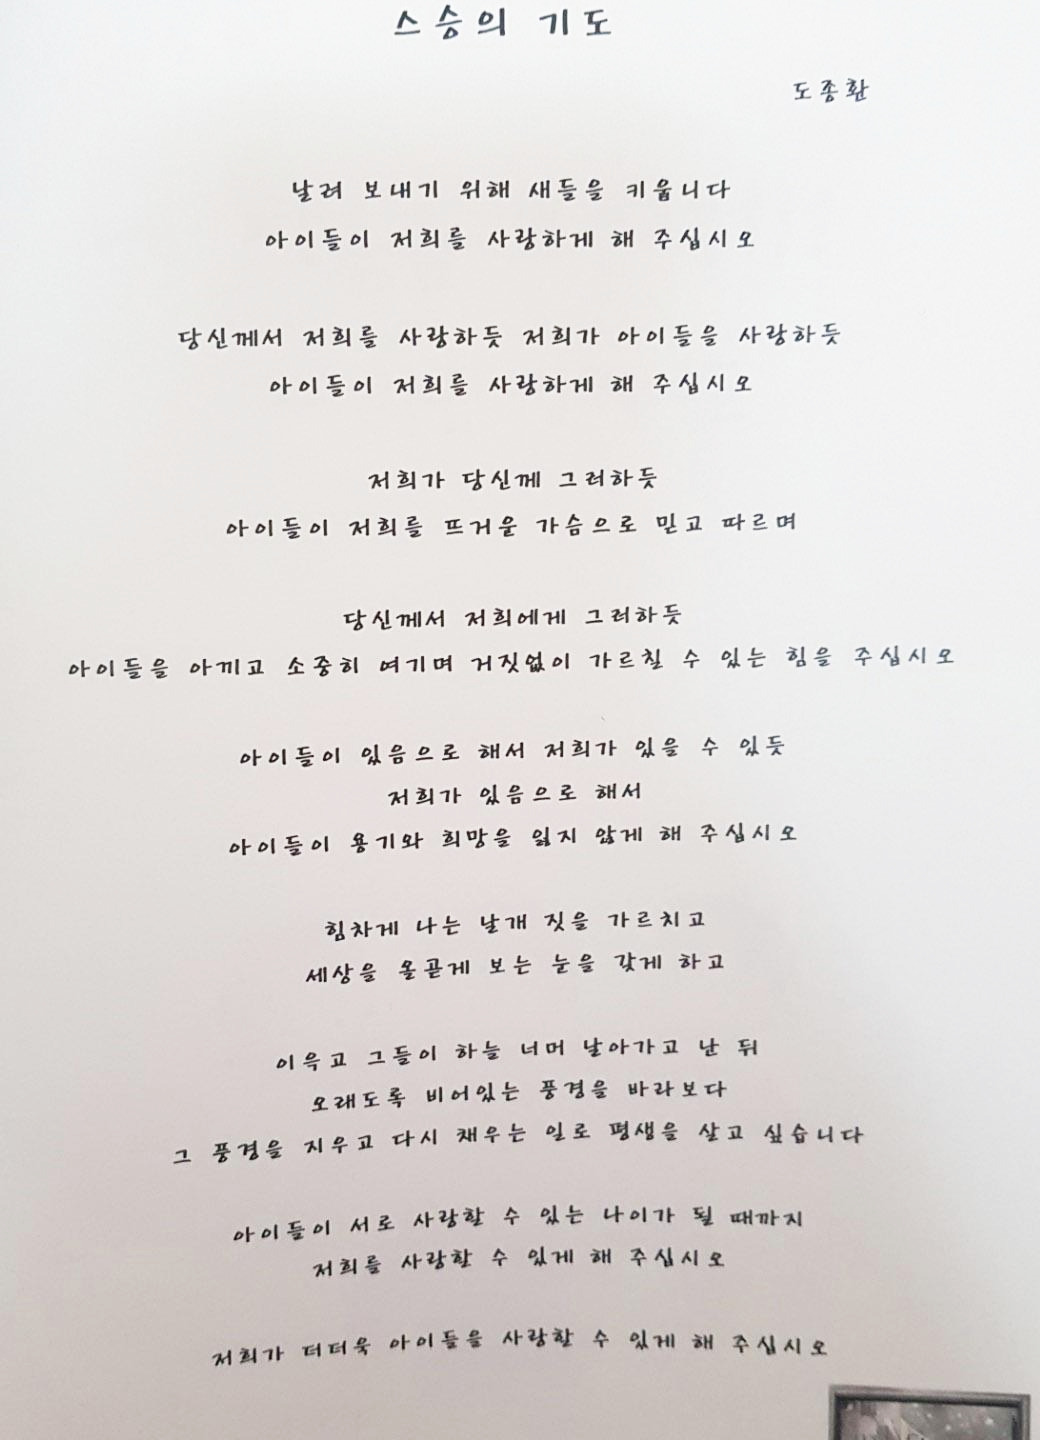 스승의 기도
도종환
날려 보내기 위해 새들을 키웁니다
아이들이 저희를 사랑하게 해 주십시오
당신께서 저희를 사랑하듯 저희가 아이들을 사랑하듯
아이들이 저희를 사랑하게 해 주십시오
저희가 당신께 그러하듯
아이들이 저희를 뜨거운 가슴으로 믿고 따르며
당신께서 저희에게 그러하듯
아이들을 아끼고 소중히 여기며 거짓없이 가르칠 수 있는 힘을 주십시오
아이들이 있음으로 해서 저희가 있을 수 있듯
저희가 있음으로 해서
아이들이 용기와 희망을 잃지 않게 해 주십시오
힘차게 나는 날개 짓을 가르치고
세상을 올곧게 보는 눈을 갖게 하고
이윽고 그들이 하늘 너머 날아가고 난 뒤
오래도록 비어있는 풍경을 바라보다
그 풍경을 지우고 다시 채우는 일로 평생을 살고 싶습니다
아이들이 서로 사랑할 수 있는 나이가 될 때까지
저희를 사랑할 수 있게 해 주십시오
저희가 더더욱 아이들을 사랑할 수 있게 해 주십시오